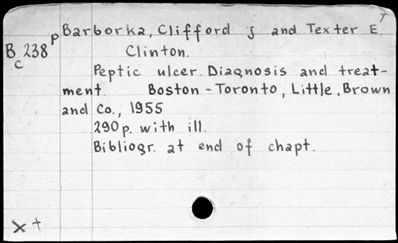 7
p Barborka, Clifford J and Texter E.
B 238 Clinton.
c
Peptic ulcer. Diagnosis and treat-
ment. Boston - Toronto, Little, Brown
and Co., 1955
290 p. with ill.
Bibliogr. at end of chapt.
x +